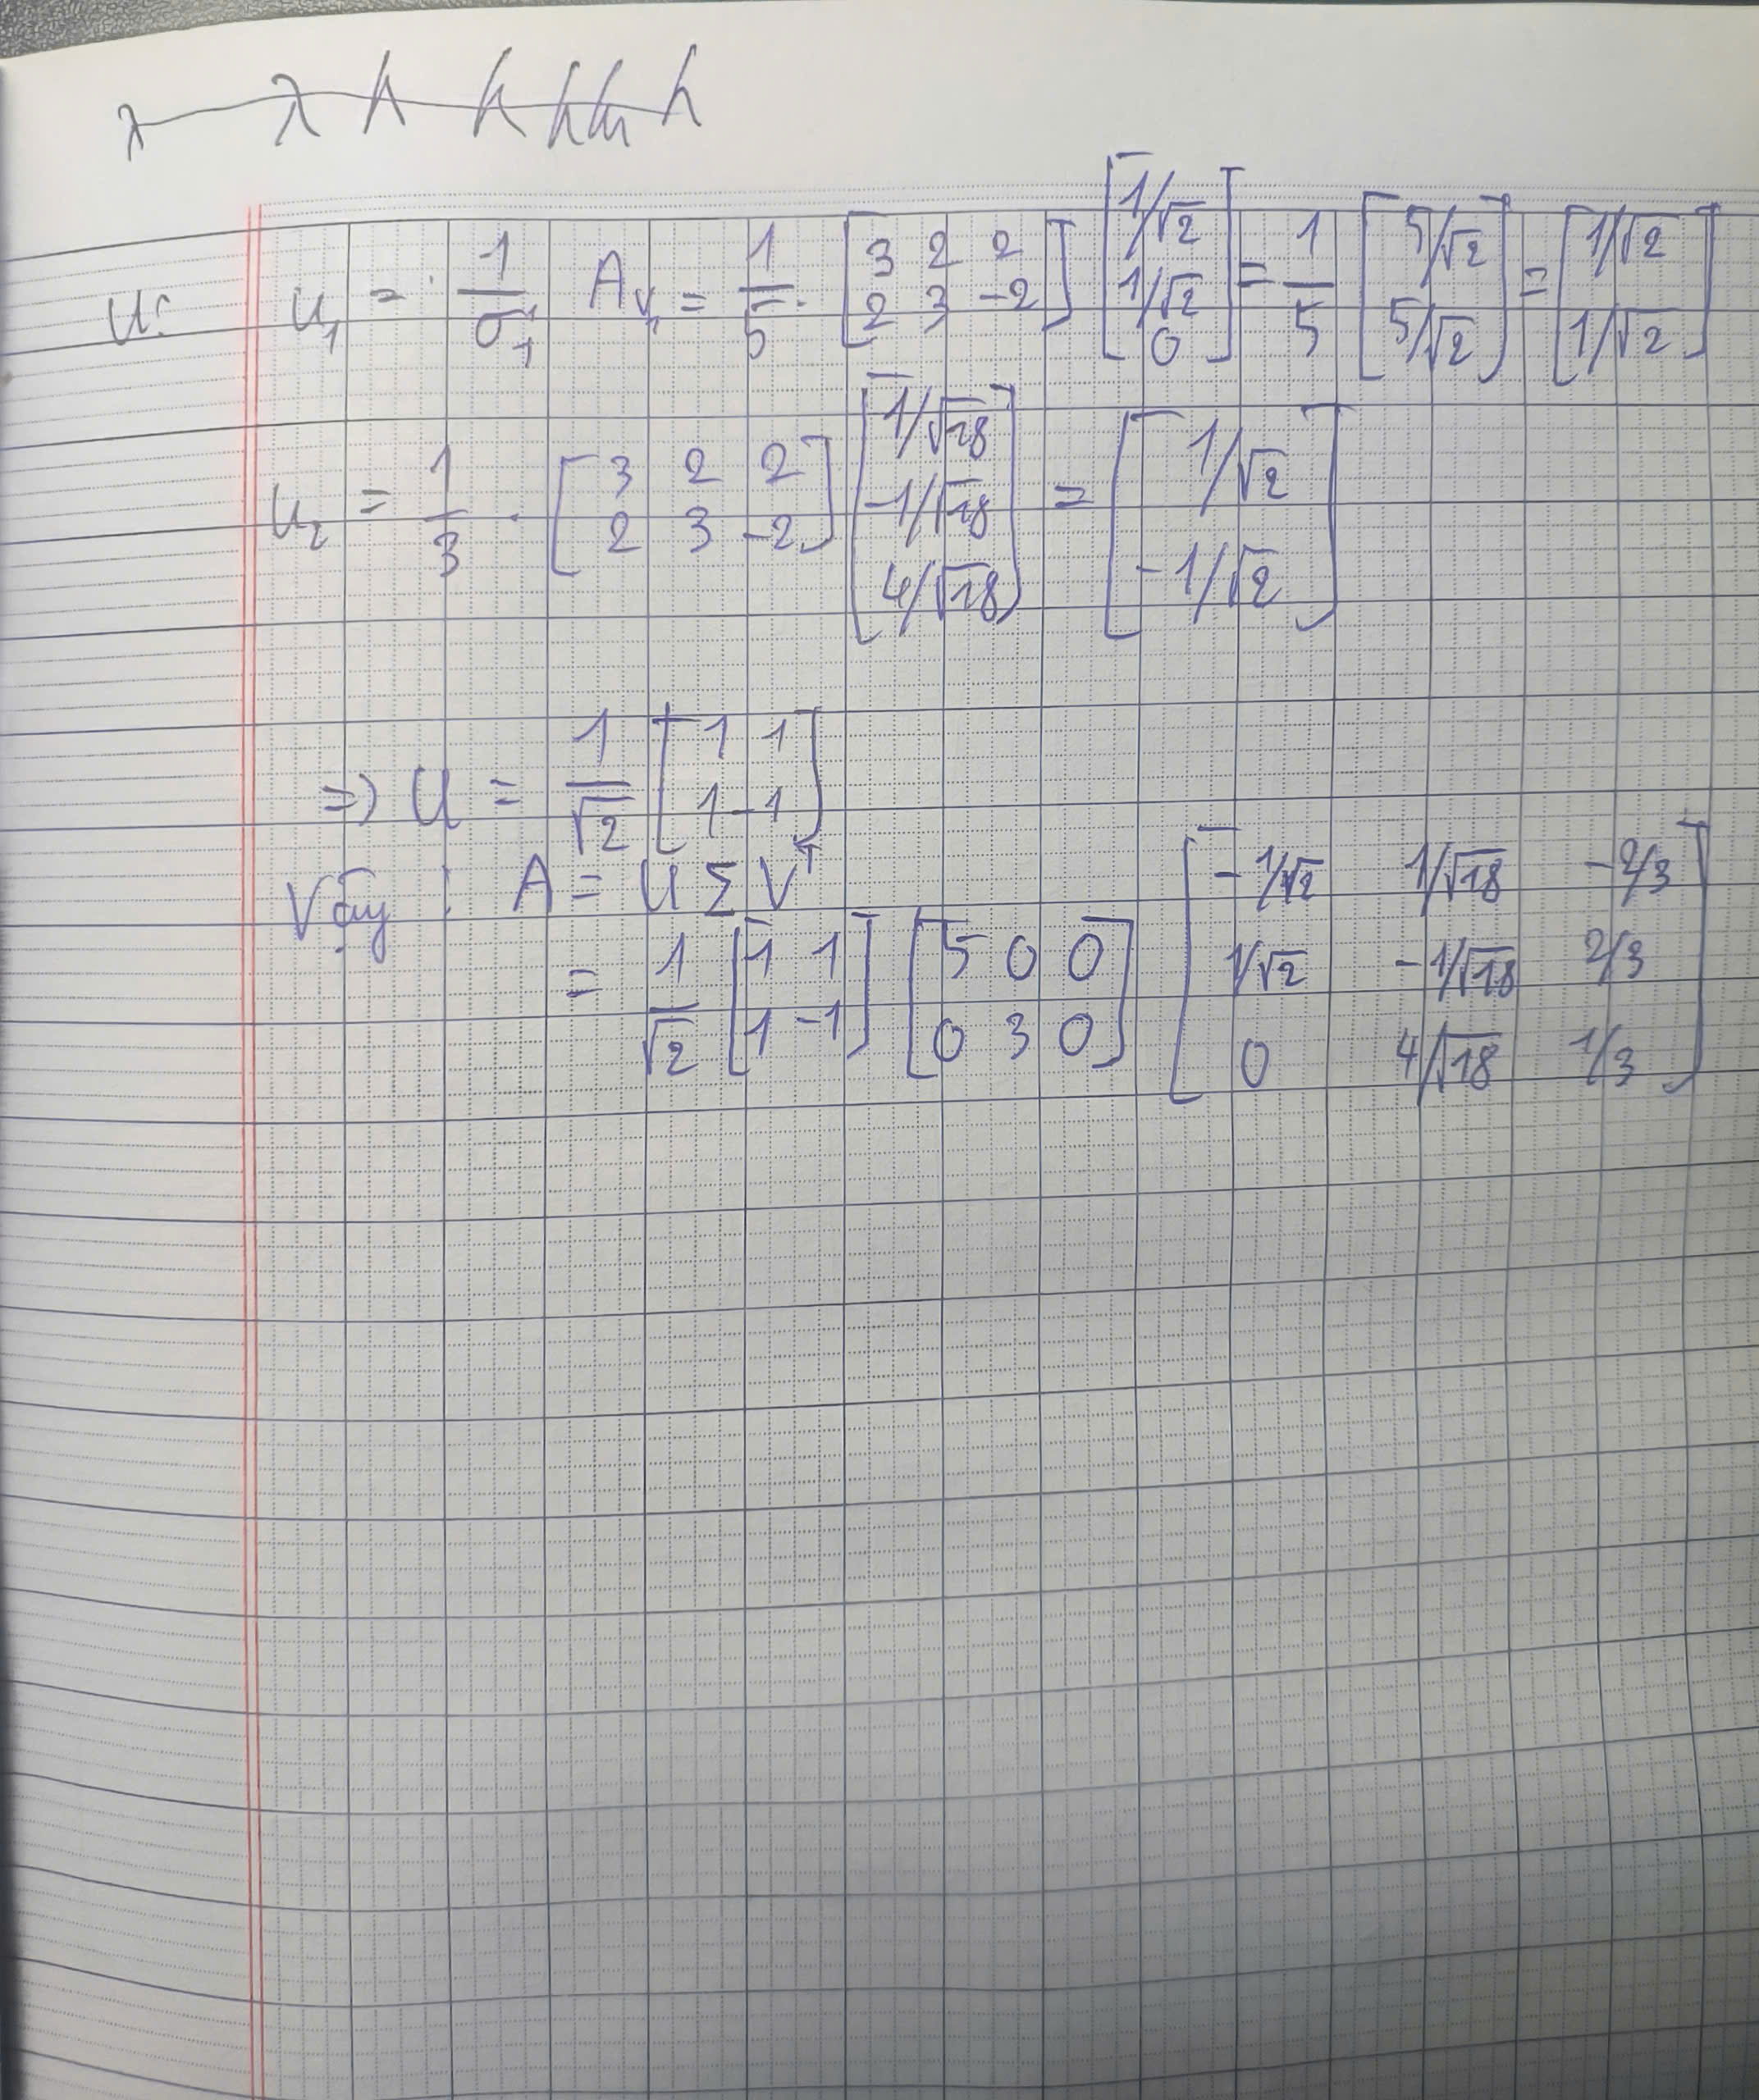 λ λ h h h h h
U: u₁ = 1/σ₁ Av₁ = 1/5 · [3 2 2; 2 3 -2] [1/√2; 1/√2; 0] = 1/5 [5/√2; 5/√2] = [1/√2; 1/√2]
u₂ = 1/3 · [3 2 2; 2 3 -2] [1/√18; -1/√18; 4/√18] = [1/√2; -1/√2]
=> U = 1/√2 [1 1; 1 -1]
Vậy : A = U Σ Vᵀ
= 1/√2 [1 1; 1 -1] [5 0 0; 0 3 0] [-1/√2 1/√18 -2/3; 1/√2 -1/√18 2/3; 0 4/√18 1/3]